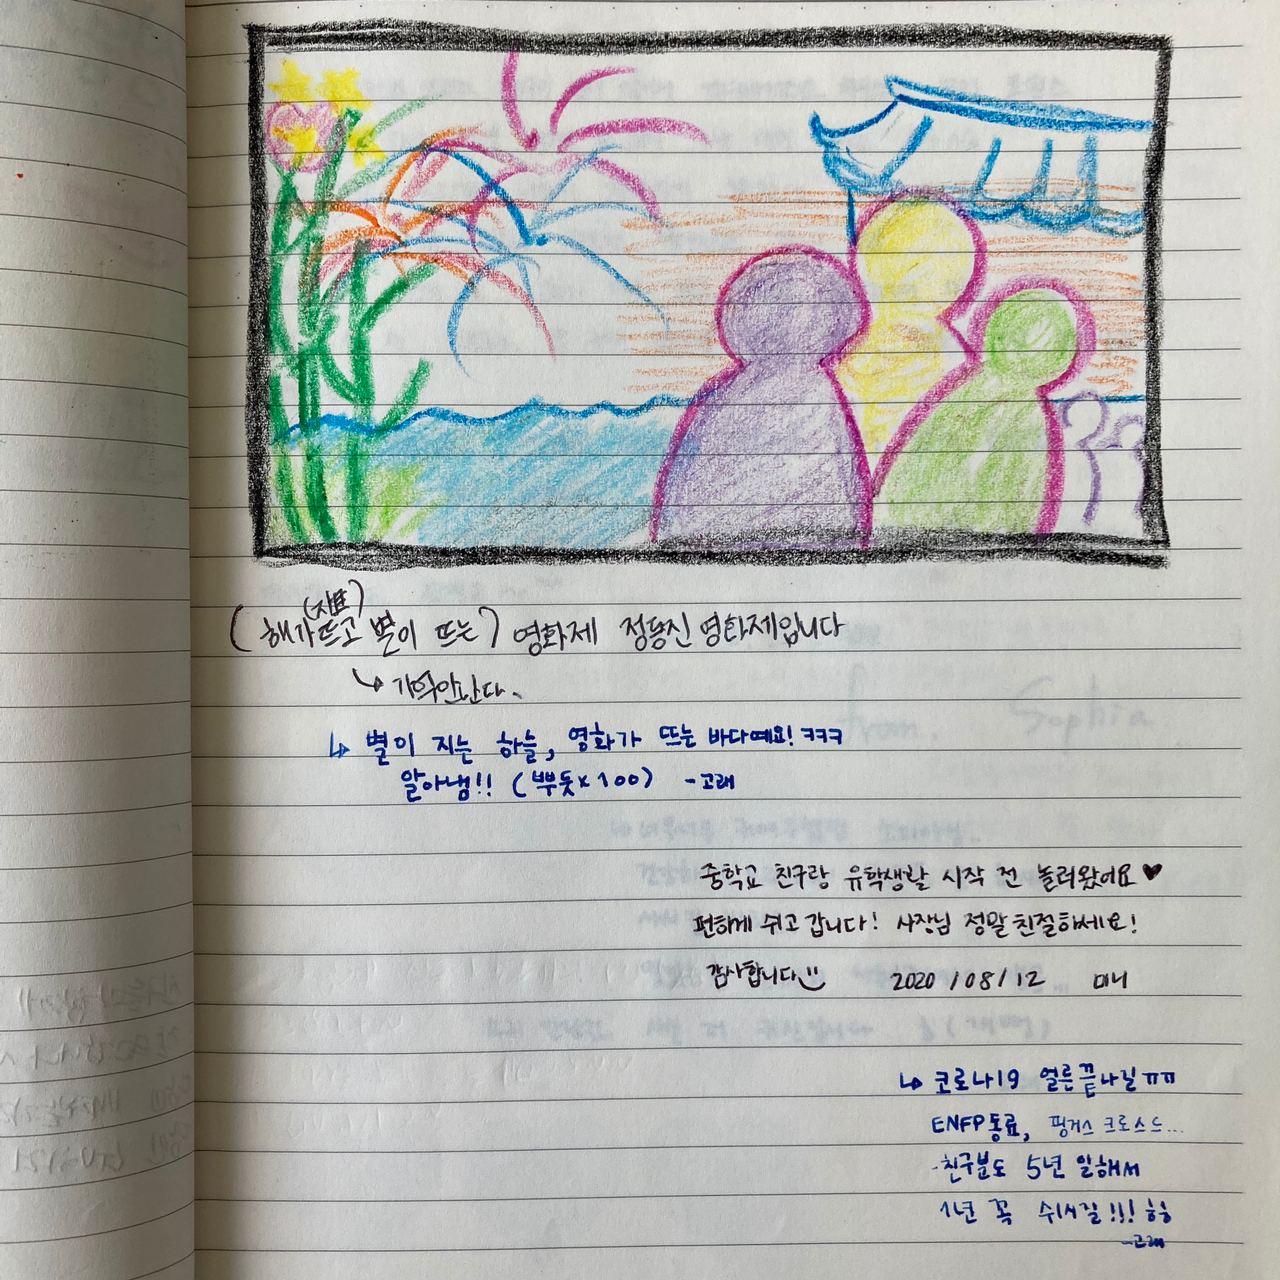 (해가 뜨고 별이 뜨는) 영화제 정동진영화제입니다
↳ 기억안난다.
↳ 별이 지는 하늘, 영화가 뜨는 바다예요! ㅋㅋㅋ
알아냄!! (뿌듯×100) -고래
중학교 친구랑 유학생활 시작 전 놀러왔어요♥
편하게 쉬고 갑니다! 사장님 정말 친절하세요!
감사합니다 2020/08/12 미니
↳ 코로나19 얼른 끝나길 ㅠㅠ
ENFP동료, 핑거스 크로스드...
친구분도 5년 일해서
1년 꼭 쉬시길!!! ㅎㅎ
-고래
from. Sophia